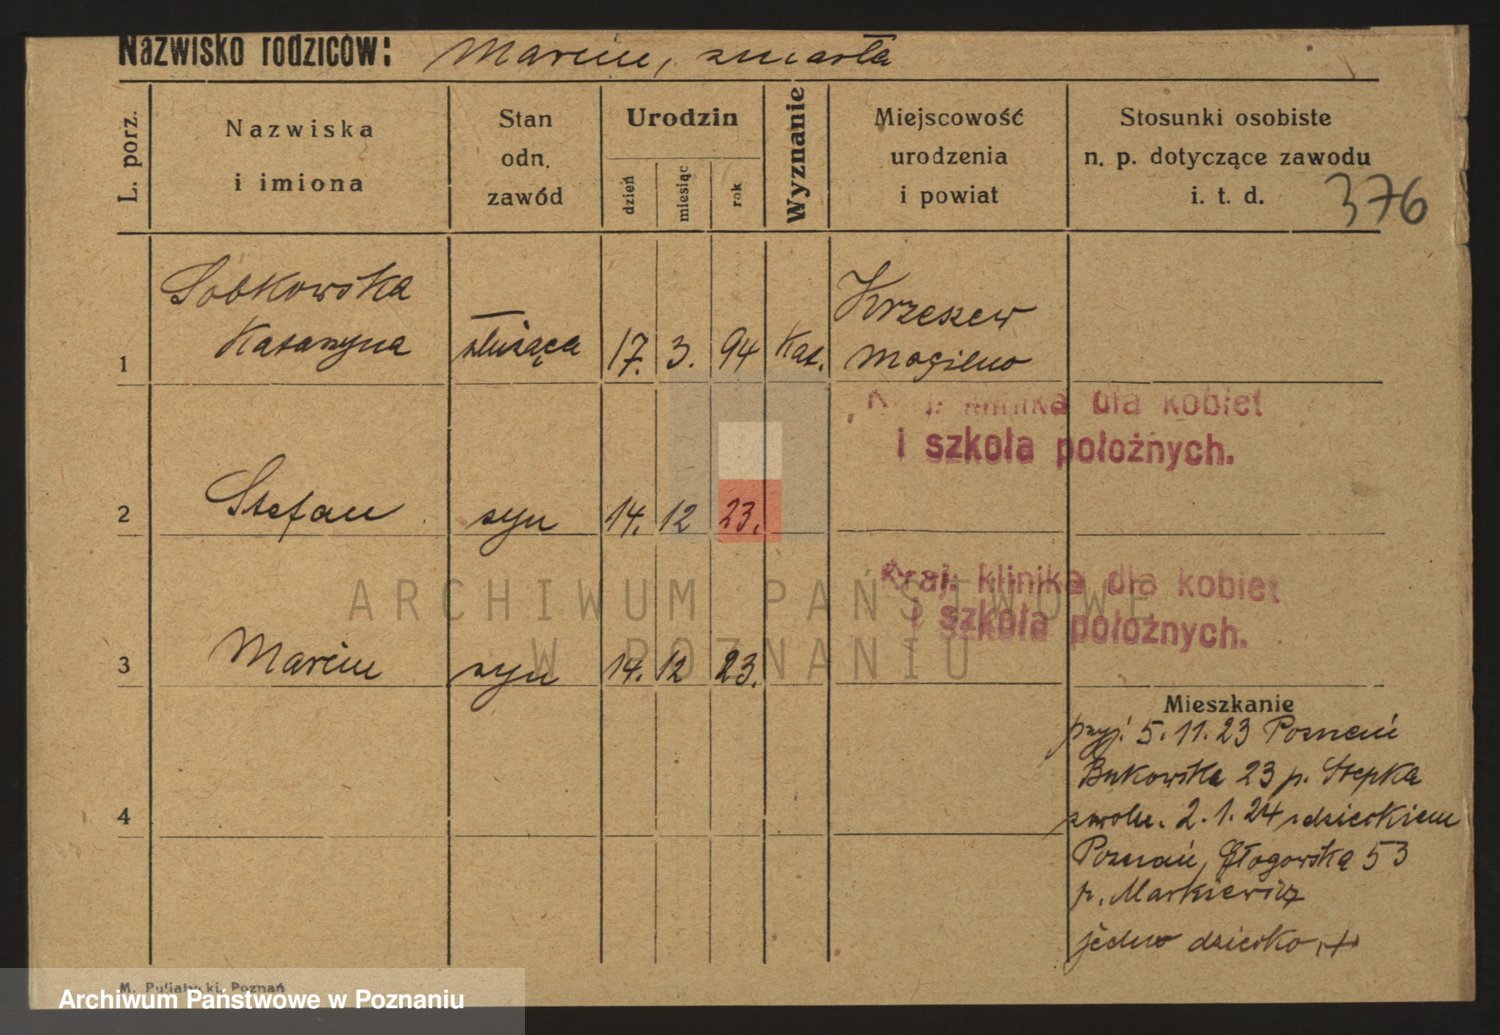 Nazwisko rodziców: Marcin, zmarła
L. porz.
Nazwiska
i imiona
Stan
odn.
zawód
Urodzin
dzień
miesiąc
rok
Wyznanie
Miejscowość
urodzenia
i powiat
Stosunki osobiste
n. p. dotyczące zawodu
i. t. d.
376
1
Sobkowska
Katarzyna
służąca
17. 3. 94
Kat.
Krzeszew
Mogilno
klinika dla kobiet
i szkoła położnych.
2
Stefan
syn
14. 12 23.
Kraj. klinika dla kobiet
i szkoła położnych.
3
Marcin
syn
14. 12 23.
4
Mieszkanie
przyj. 5. 11. 23 Poznań
Bukowska 23 p. Stepka
zwoln. 2. 1. 24 z dzieckiem
Poznań, Głogowska 53
p. Markiewicz
jedno dziecko +
ARCHIWUM PAŃSTWOWE
W POZNANIU
Poznań
Archiwum Państwowe w Poznaniu